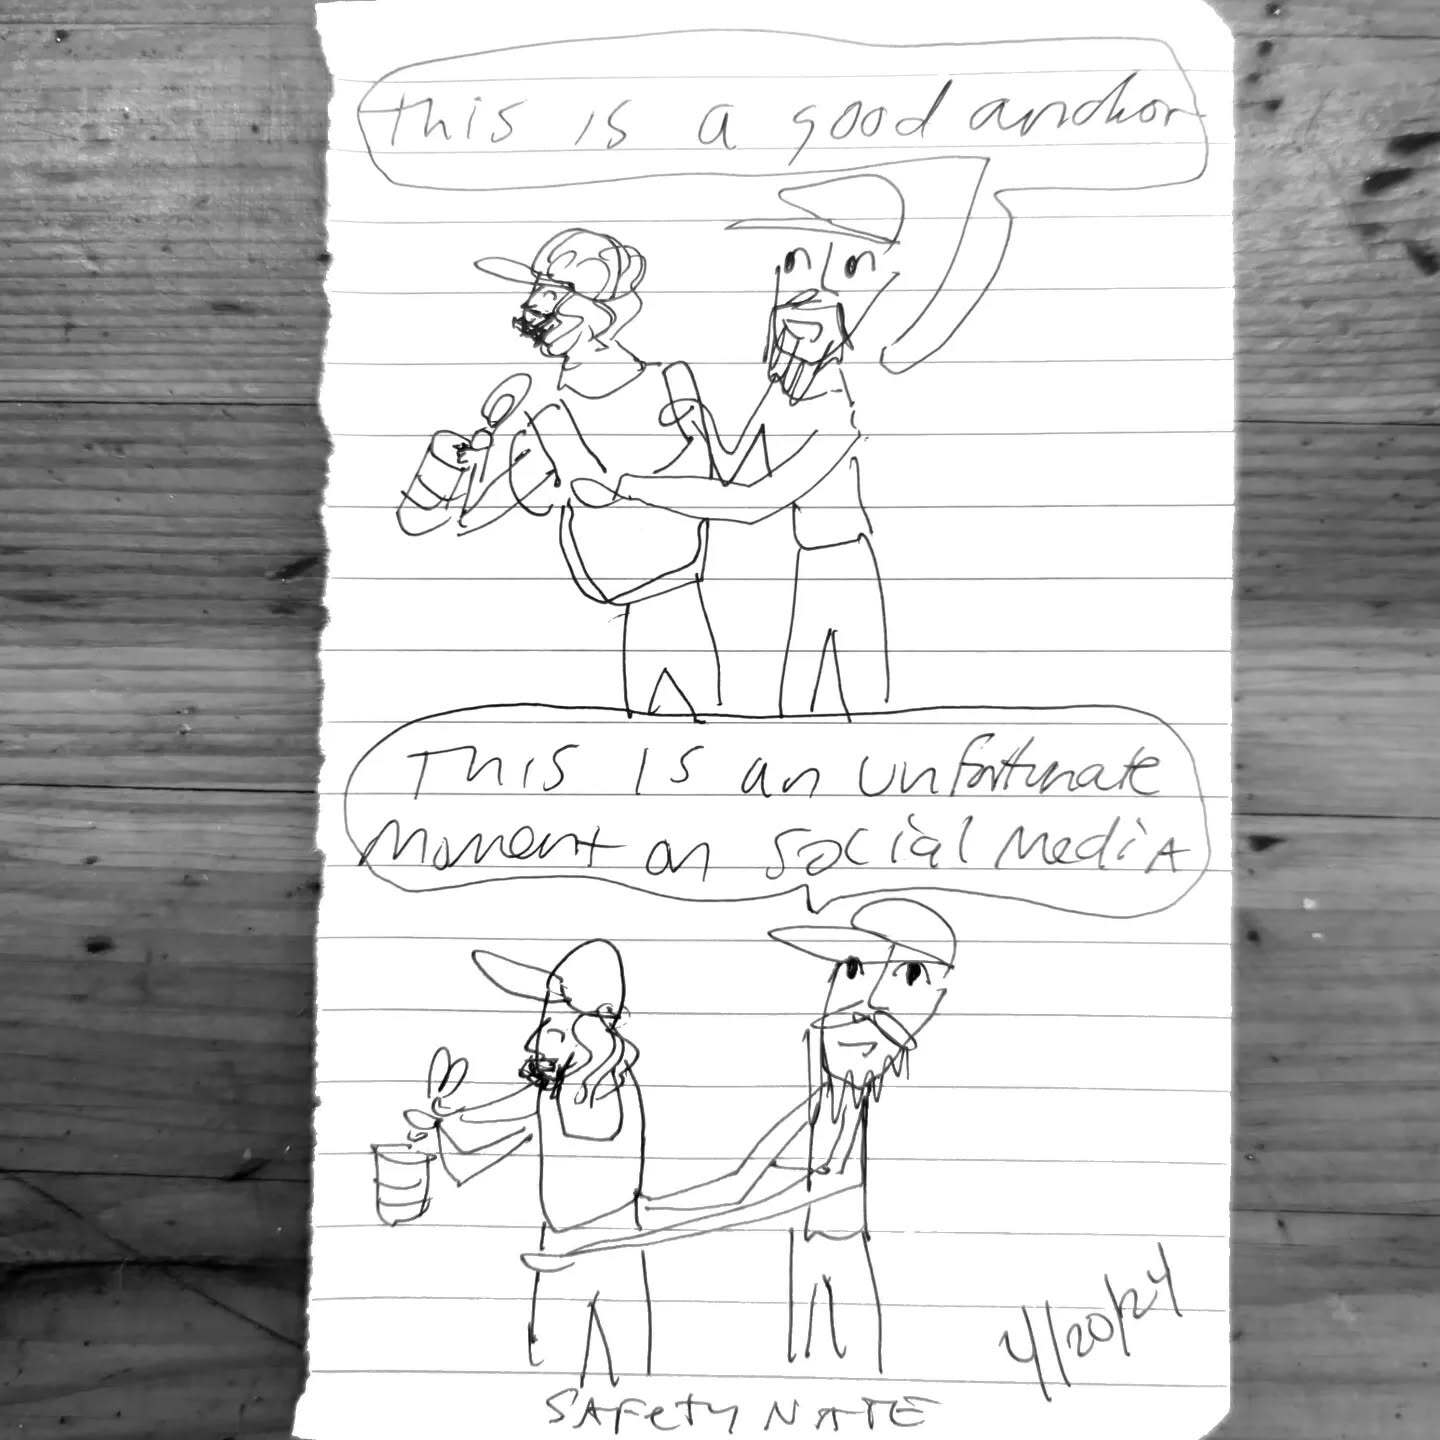 this is a good anchor
This is an unfortunate
moment on social media
4/20/24
SAFety NATE